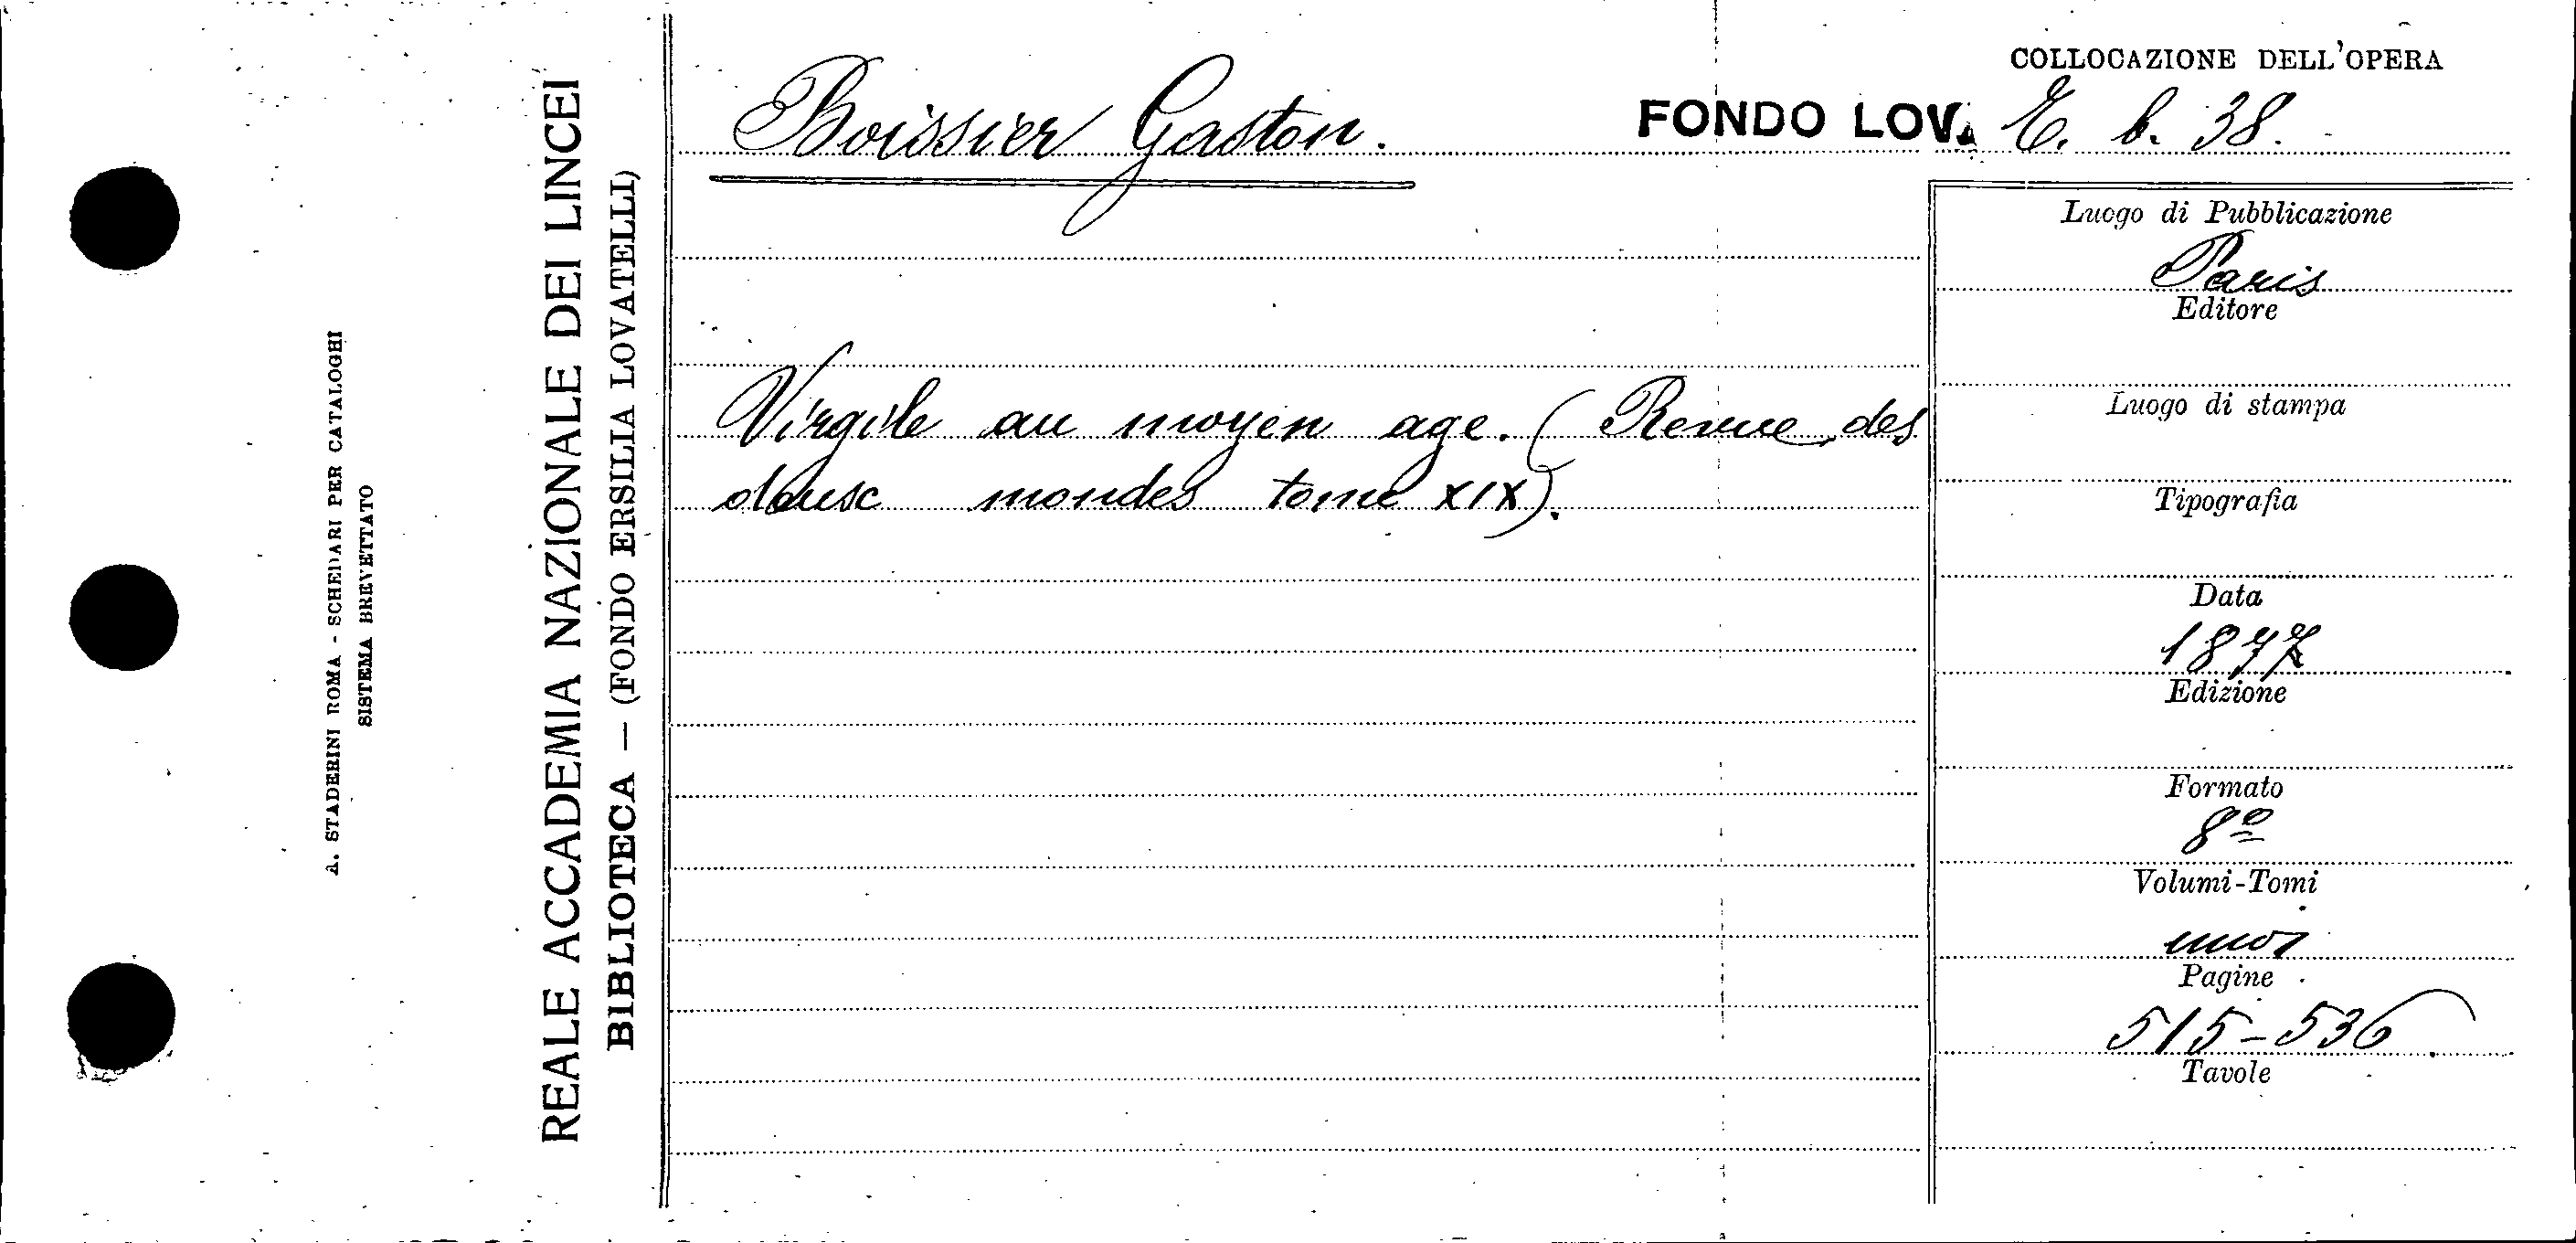 A. STADERINI ROMA - SCHEDARI PER CATALOGHI
SISTEMA BREVETTATO
REALE ACCADEMIA NAZIONALE DEI LINCEI
BIBLIOTECA — (FONDO ERSILIA LOVATELLI)
COLLOCAZIONE DELL'OPERA
Boissier Gaston. FONDO LOV. E. b. 38.
Virgile au moyen age. (Revue des
deusc mondes tome XIX).
Luogo di Pubblicazione
Paris
Editore
Luogo di stampa
Tipografia
Data
1877
Edizione
Formato
8º
Volumi-Tomi
uno
Pagine
515-536
Tavole